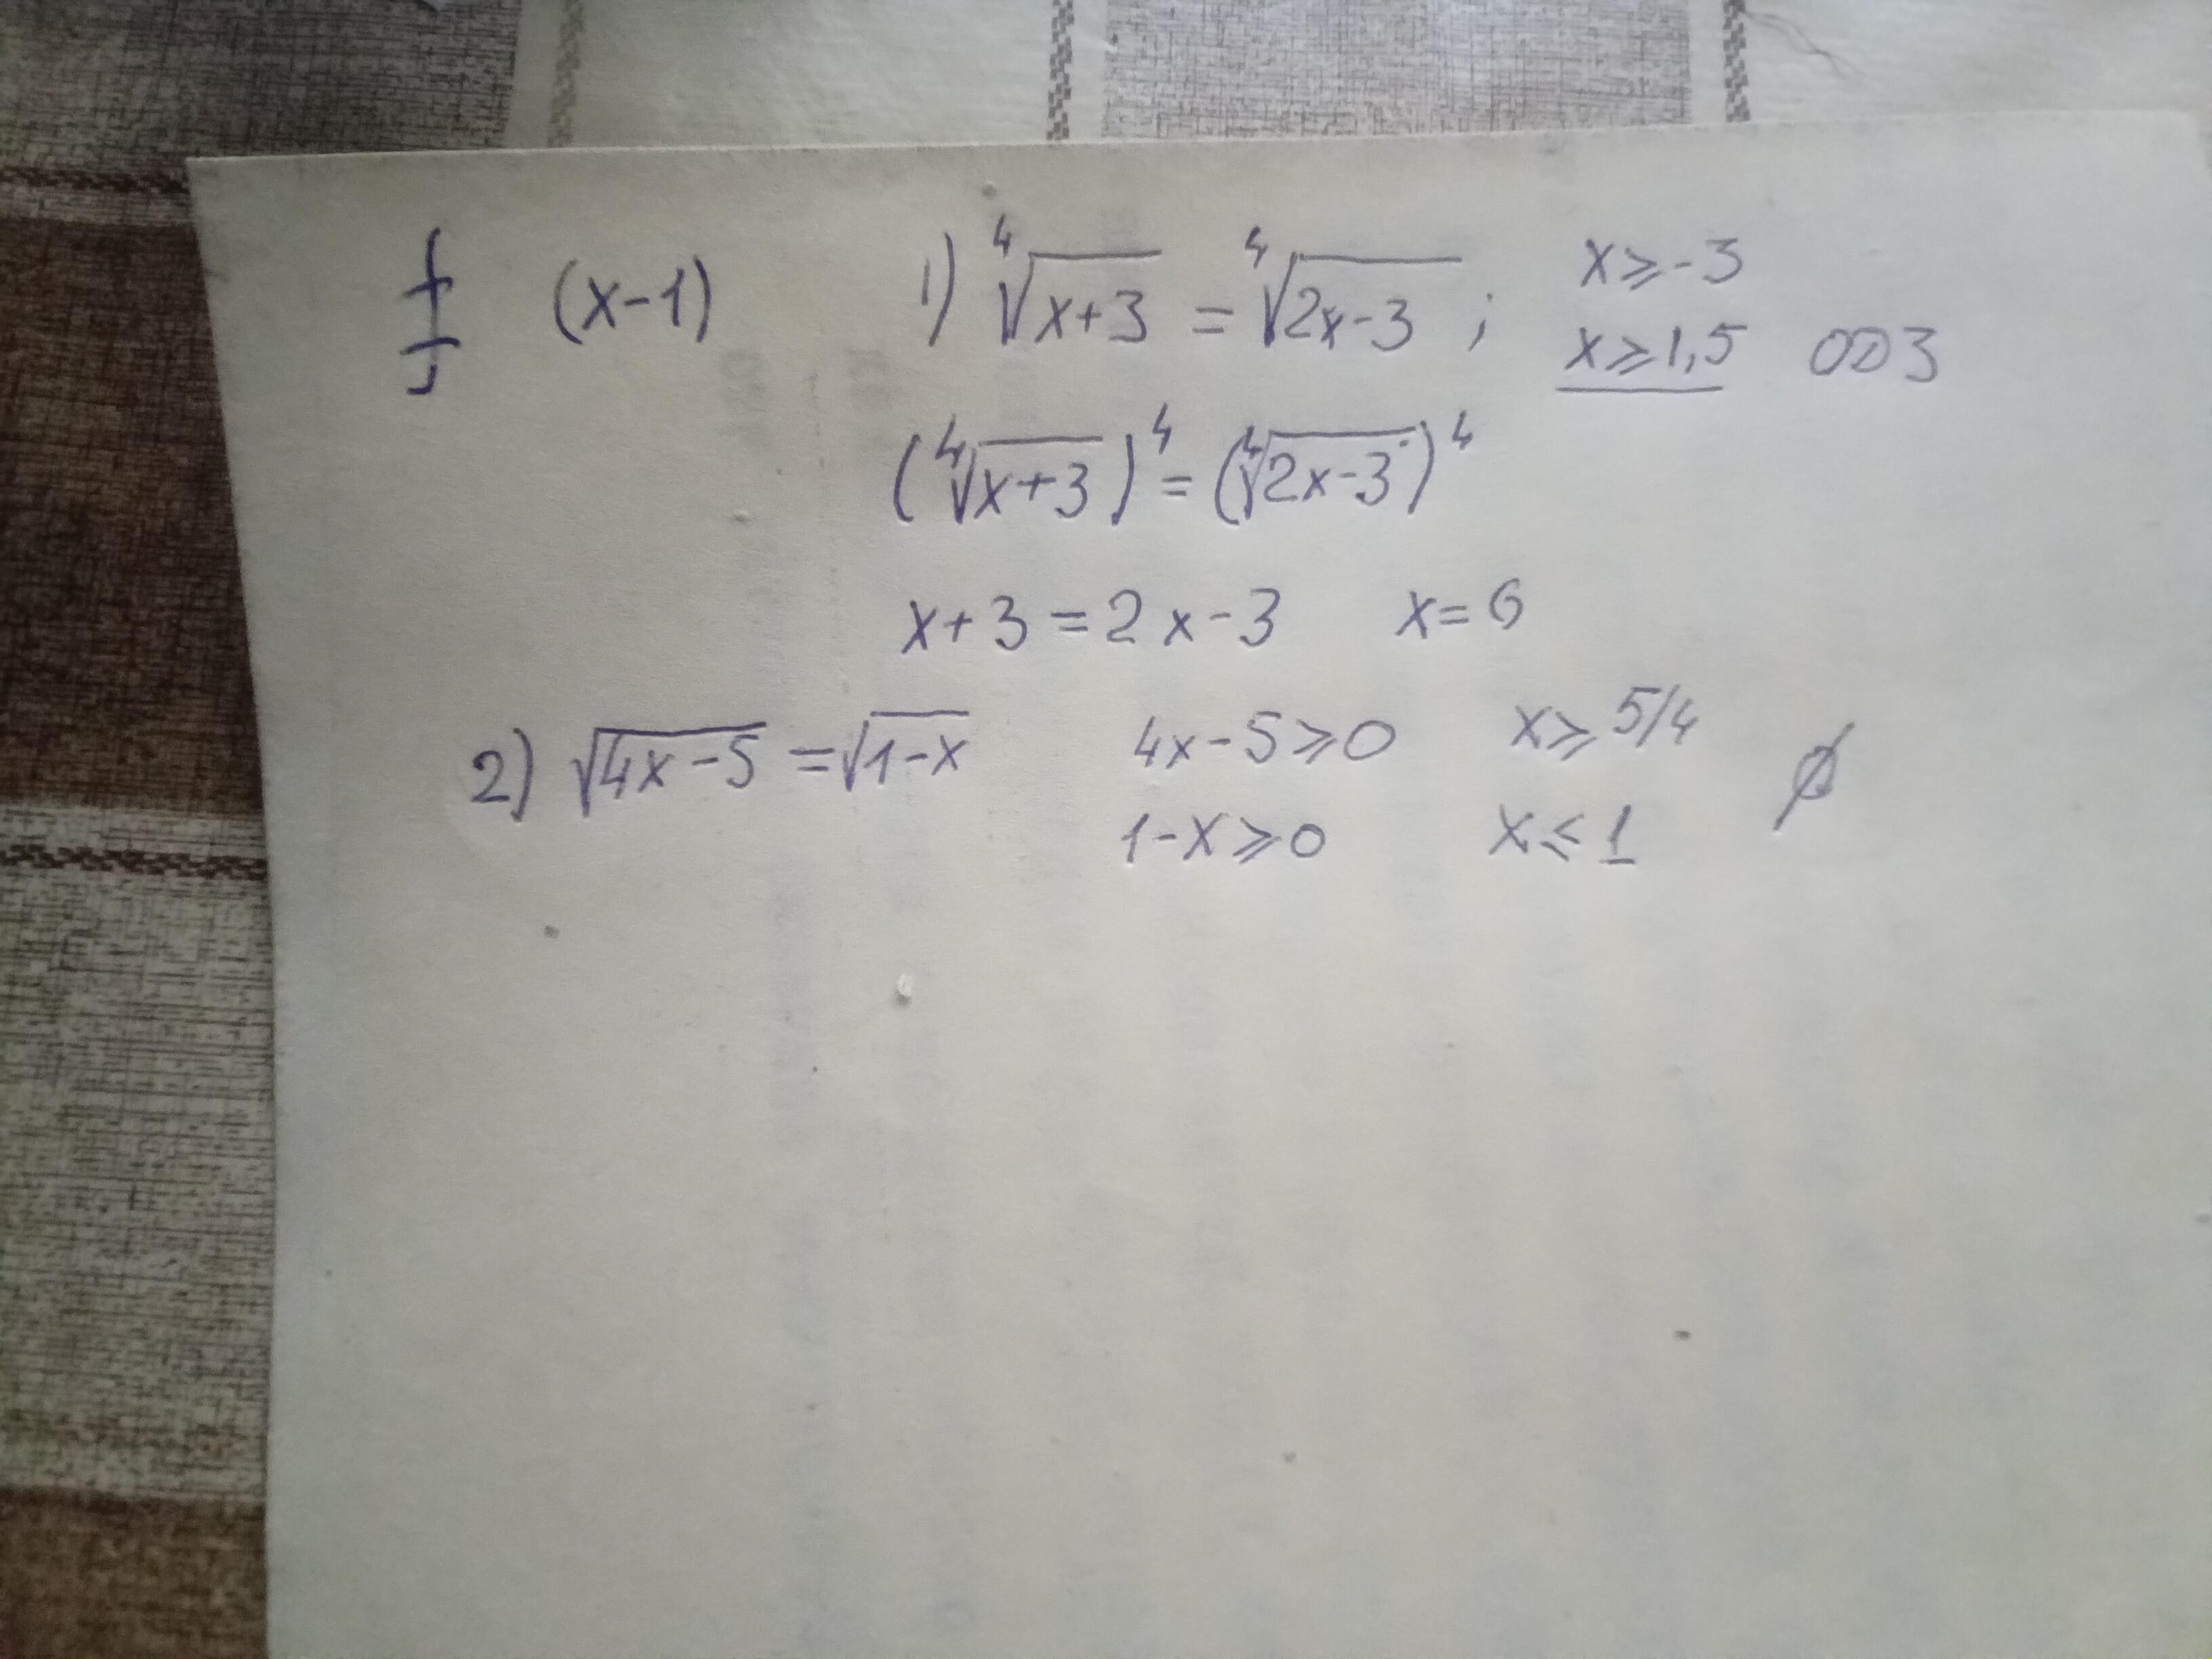 (x-1) 1) ⁴√(x+3) = ⁴√(2x-3) ; x≥-3
x≥1,5 ОДЗ
(⁴√(x+3))⁴ = (⁴√(2x-3))⁴
x+3=2x-3 x=6
2) √(4x-5) = √(1-x) 4x-5≥0 x≥5/4 ∅
1-x≥0 x≤1